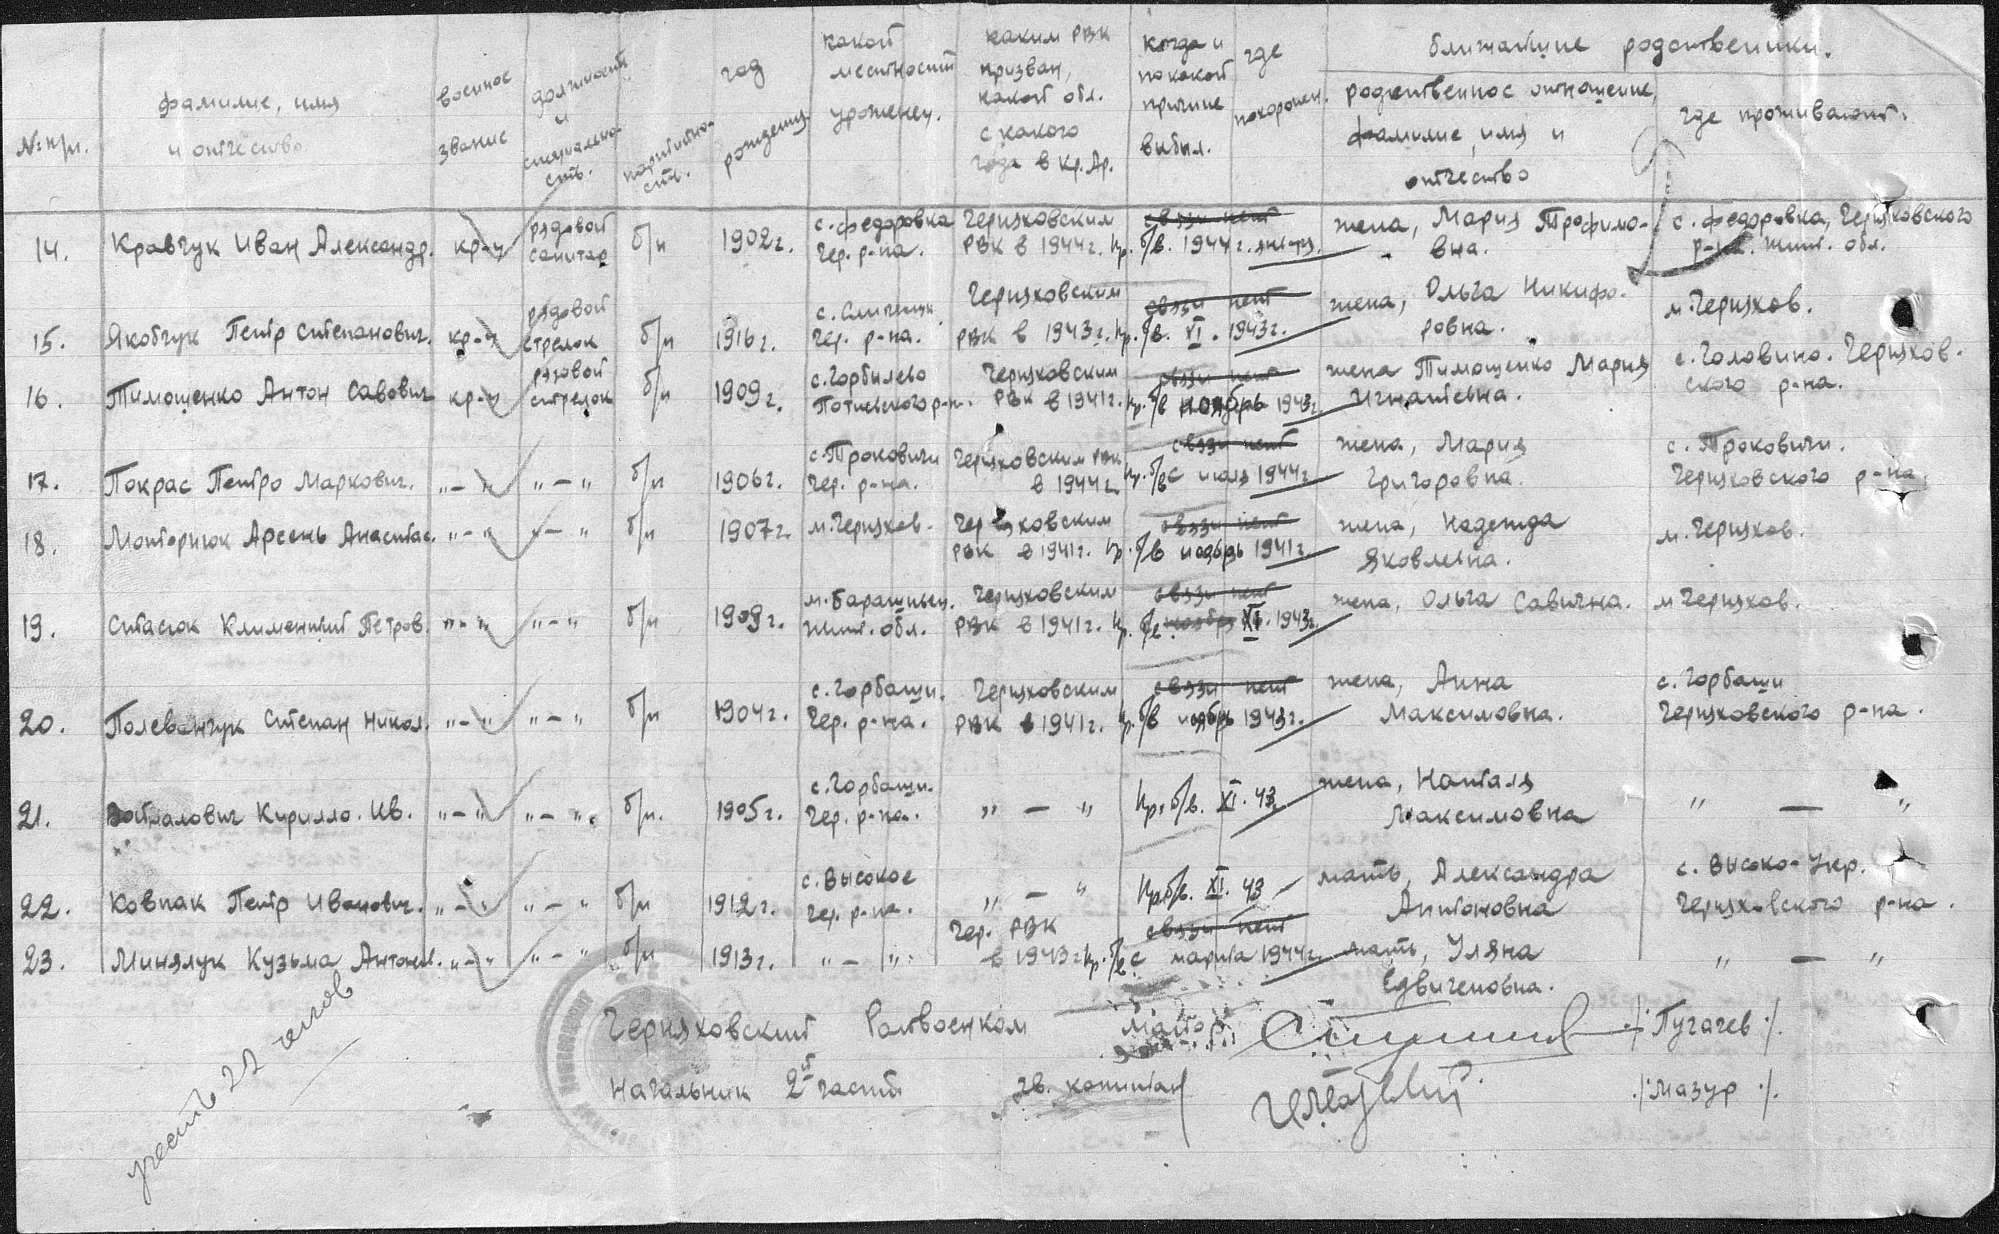 № п/п.
фамилие, имя
и отчество
военное
звание
должность
и
специально-
сть.
партийно-
сть.
год
рождения
какой
местности
уроженец.
каким РВК
призван,
какой обл.
с какого
года в Кр. Ар.
когда и
по какой
причине
выбыл.
где
похоронен.
ближайшие родственники.
родственное отношение,
фамилие, имя и
отчество
где проживают.
14. Кравчук Иван Александр. кр-ц рядовой санитар б/п 1902 г. с. Федоровка Чер. р-на. Черняховским РВК в 1944 г. связи нет пр. б/в. 1944 г. января. жена, Мария Трофимо- с. Федоровка, Черняховского
вна. р-на. Жит. обл.
15. Якобчук Петр Степанович. кр-ц рядовой стрелок б/п 1916 г. Чер. р-на. Черняховским РВК в 1943 г. связи нет пр. б/в. XI. 1943 г. жена, Ольга Никифо- м. Черняхов.
ровна.
16. Тимощенко Антон Савович кр-ц рядовой стрелок б/п 1909 г. с. Горбылево Потиевского р-н. Черняховским РВК в 1941 г. связи нет пр. б/в ноябрь 1943 г. жена Тимощенко Мария с. Головино. Черняхов-
Игнатевна. ского р-на.
17. Покрас Петро Маркович. „ — „ „ — „ б/п 1906 г. с. Троковичи Чер. р-на. Черняховским РВК в 1944 г. связи нет пр. б/в с июля 1944 г. жена, Мария с. Троковичи.
Григоровна. Черняховского р-на,
18. Арсень Анастас. „ — „ „ — „ б/п 1907 г. м. Черняхов. Черняховским РВК в 1941 г. связи нет пр. б/в ноябрь 1941 г. жена, Надежда м. Черняхов.
Яковлевна.
19. Стасюк Климентий Петров. „ — „ „ — „ б/п 1909 г. Жит. обл. Черняховским РВК в 1941 г. связи нет пр. б/в ноябрь XI. 1943 г. жена, Ольга Савична. м. Черняхов.
20. Полеванчук Степан Никол. „ — „ „ — „ б/п 1904 г. с. Горбаши. Чер. р-на. Черняховским РВК в 1941 г. связи нет пр. б/в ноябрь 1943 г. жена, Анна с. Горбаши
Максимовна. Черняховского р-на.
21. Кирилло. Ив. „ — „ „ — „ б/п. 1905 г. с. Горбаши. Чер. р-на. „ — „ Пр. б/в. XI. 43 жена, Наталя „ — „
Максимовна
22. Ковпак Петр Иванович. „ — „ „ — „ б/п 1912 г. с. Высокое Чер. р-на. „ — „ Пр. б/в. XI. 43 мать, Александра с. Высоко-Укр.
Антоновна Черняховского р-на.
23. Минялук Кузьма Антонов. „ — „ „ — „ б/п 1913 г. „ — „ Чер. РВК в 1943 г. связи нет пр. б/в с марта 1944 г. мать, Уляна „ — „
Едвигеновна.
Черняховский Райвоенком майор /: Пугачев :/.
Начальник 2й части гв. капитан /: Мазур :/.
учесть 22 челов